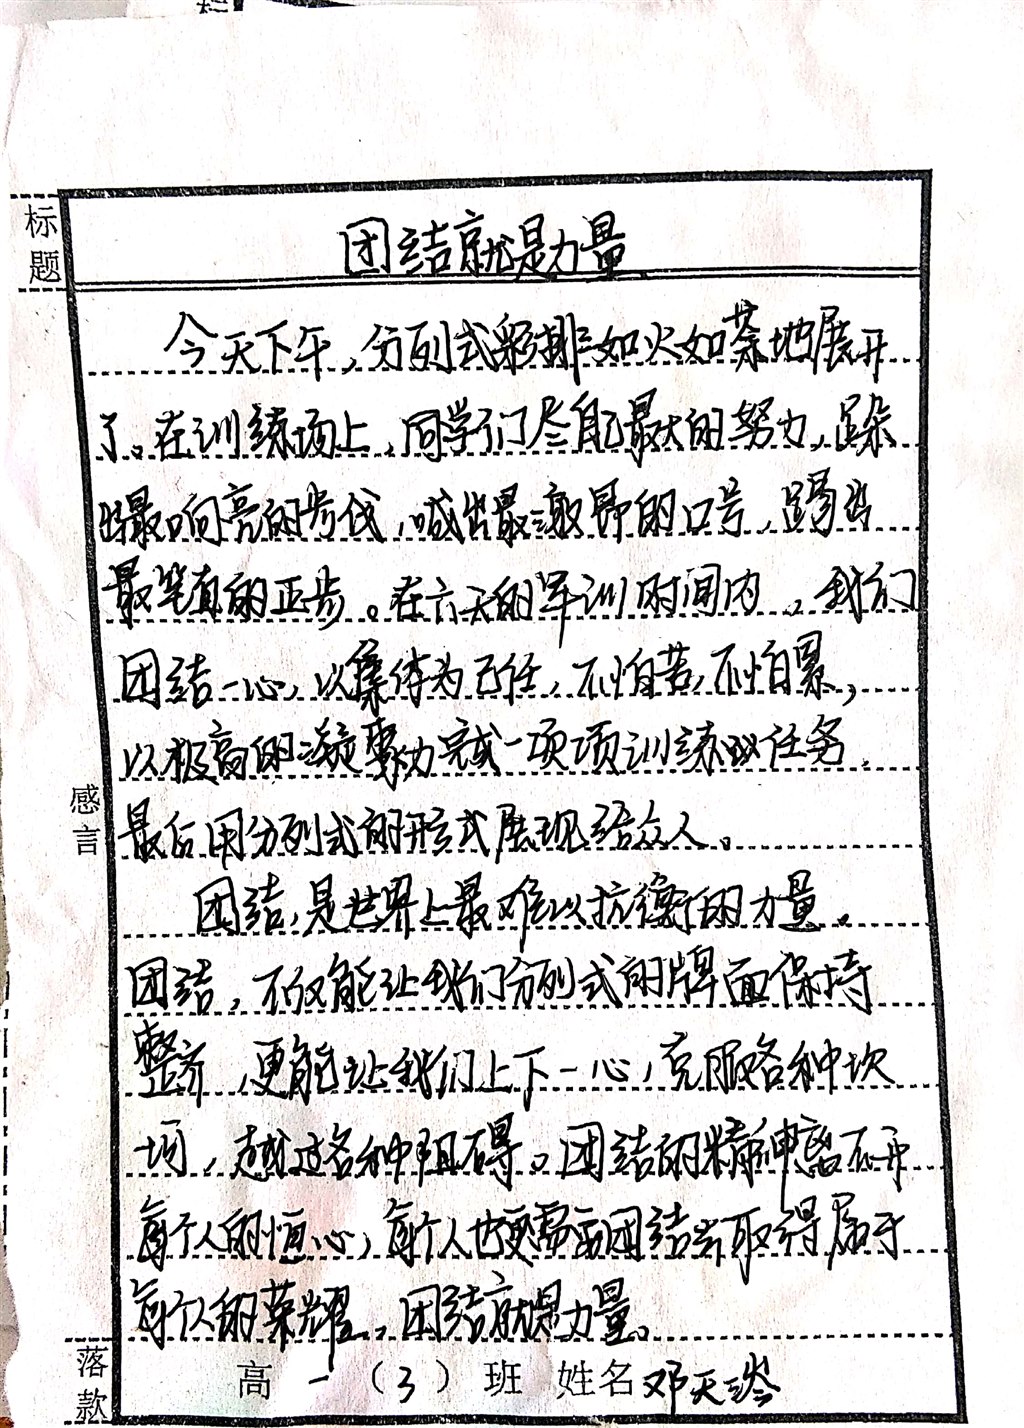 标题
团结就是力量
今天下午，分列式彩排如火如荼地展开
了。在训练场上，同学们尽自己最大的努力，跺
出最响亮的步伐，喊出最激昂的口号，踢出
最笔直的正步。在六天的军训时间内，我们
团结一心，以集体为己任，不怕苦，不怕累，
以极高的凝聚力完成一项项训练任务，
最后用分列式的形式展现给众人。
感言
团结，是世界上最难以抗衡的力量。
团结，不仅能让我们分列式的牌面保持
整齐，更能让我们上下一心，克服各种坎
坷，越过各种阻碍。团结的精神离不开
每个人的恒心，每个人也更需要团结去取得属于
每个人的荣耀，团结就是力量。
落款
高一（3）班 姓名 邓天